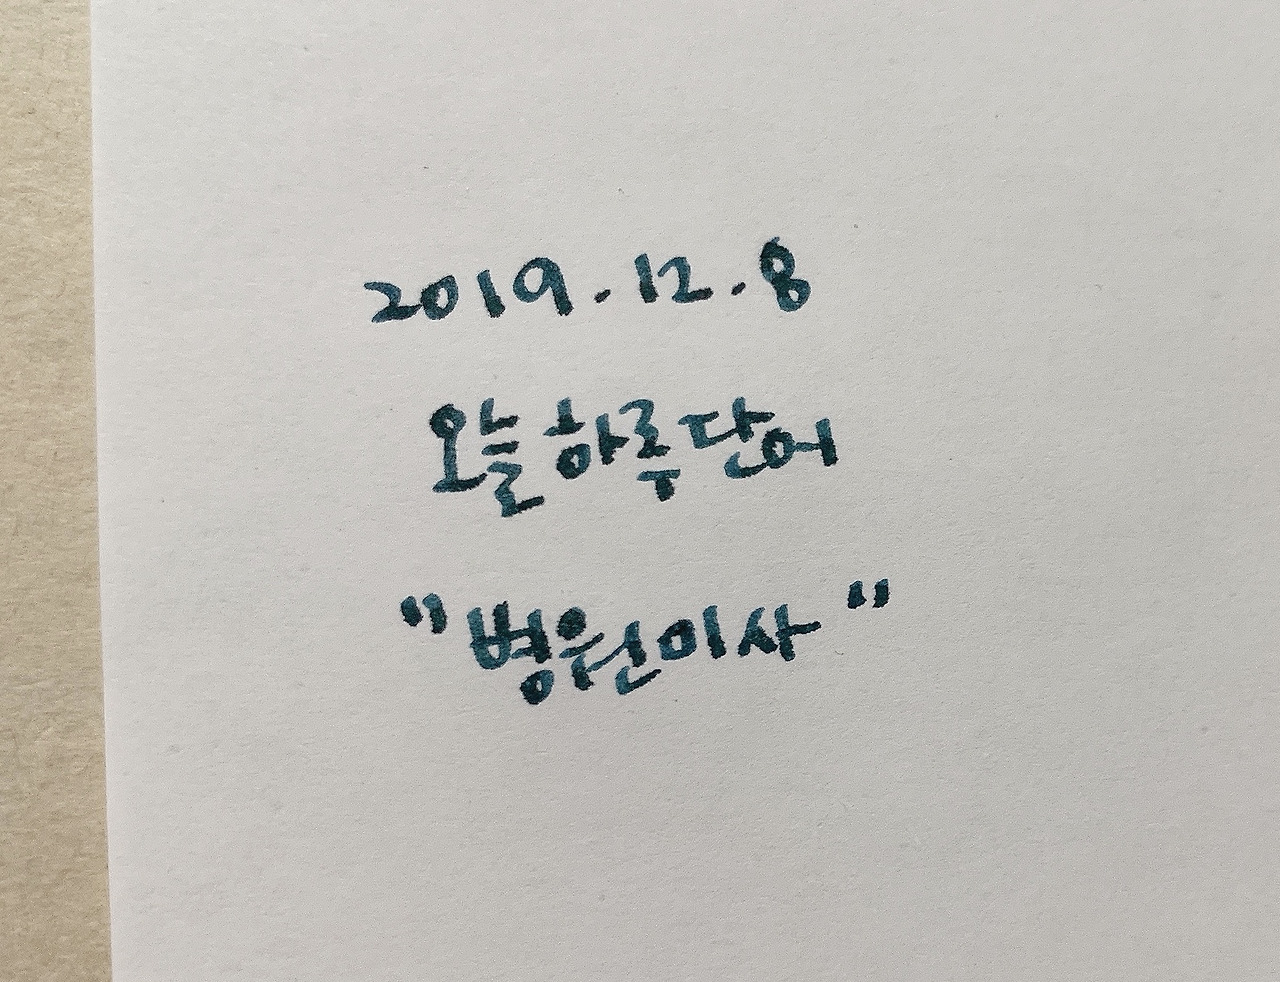 2019.12.8
오늘하루단어
"병원미사"